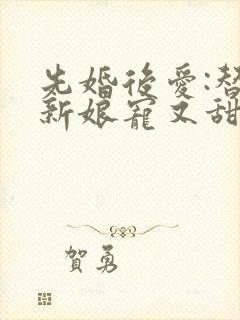 先婚後愛:替
新娘寵又甜
賀勇